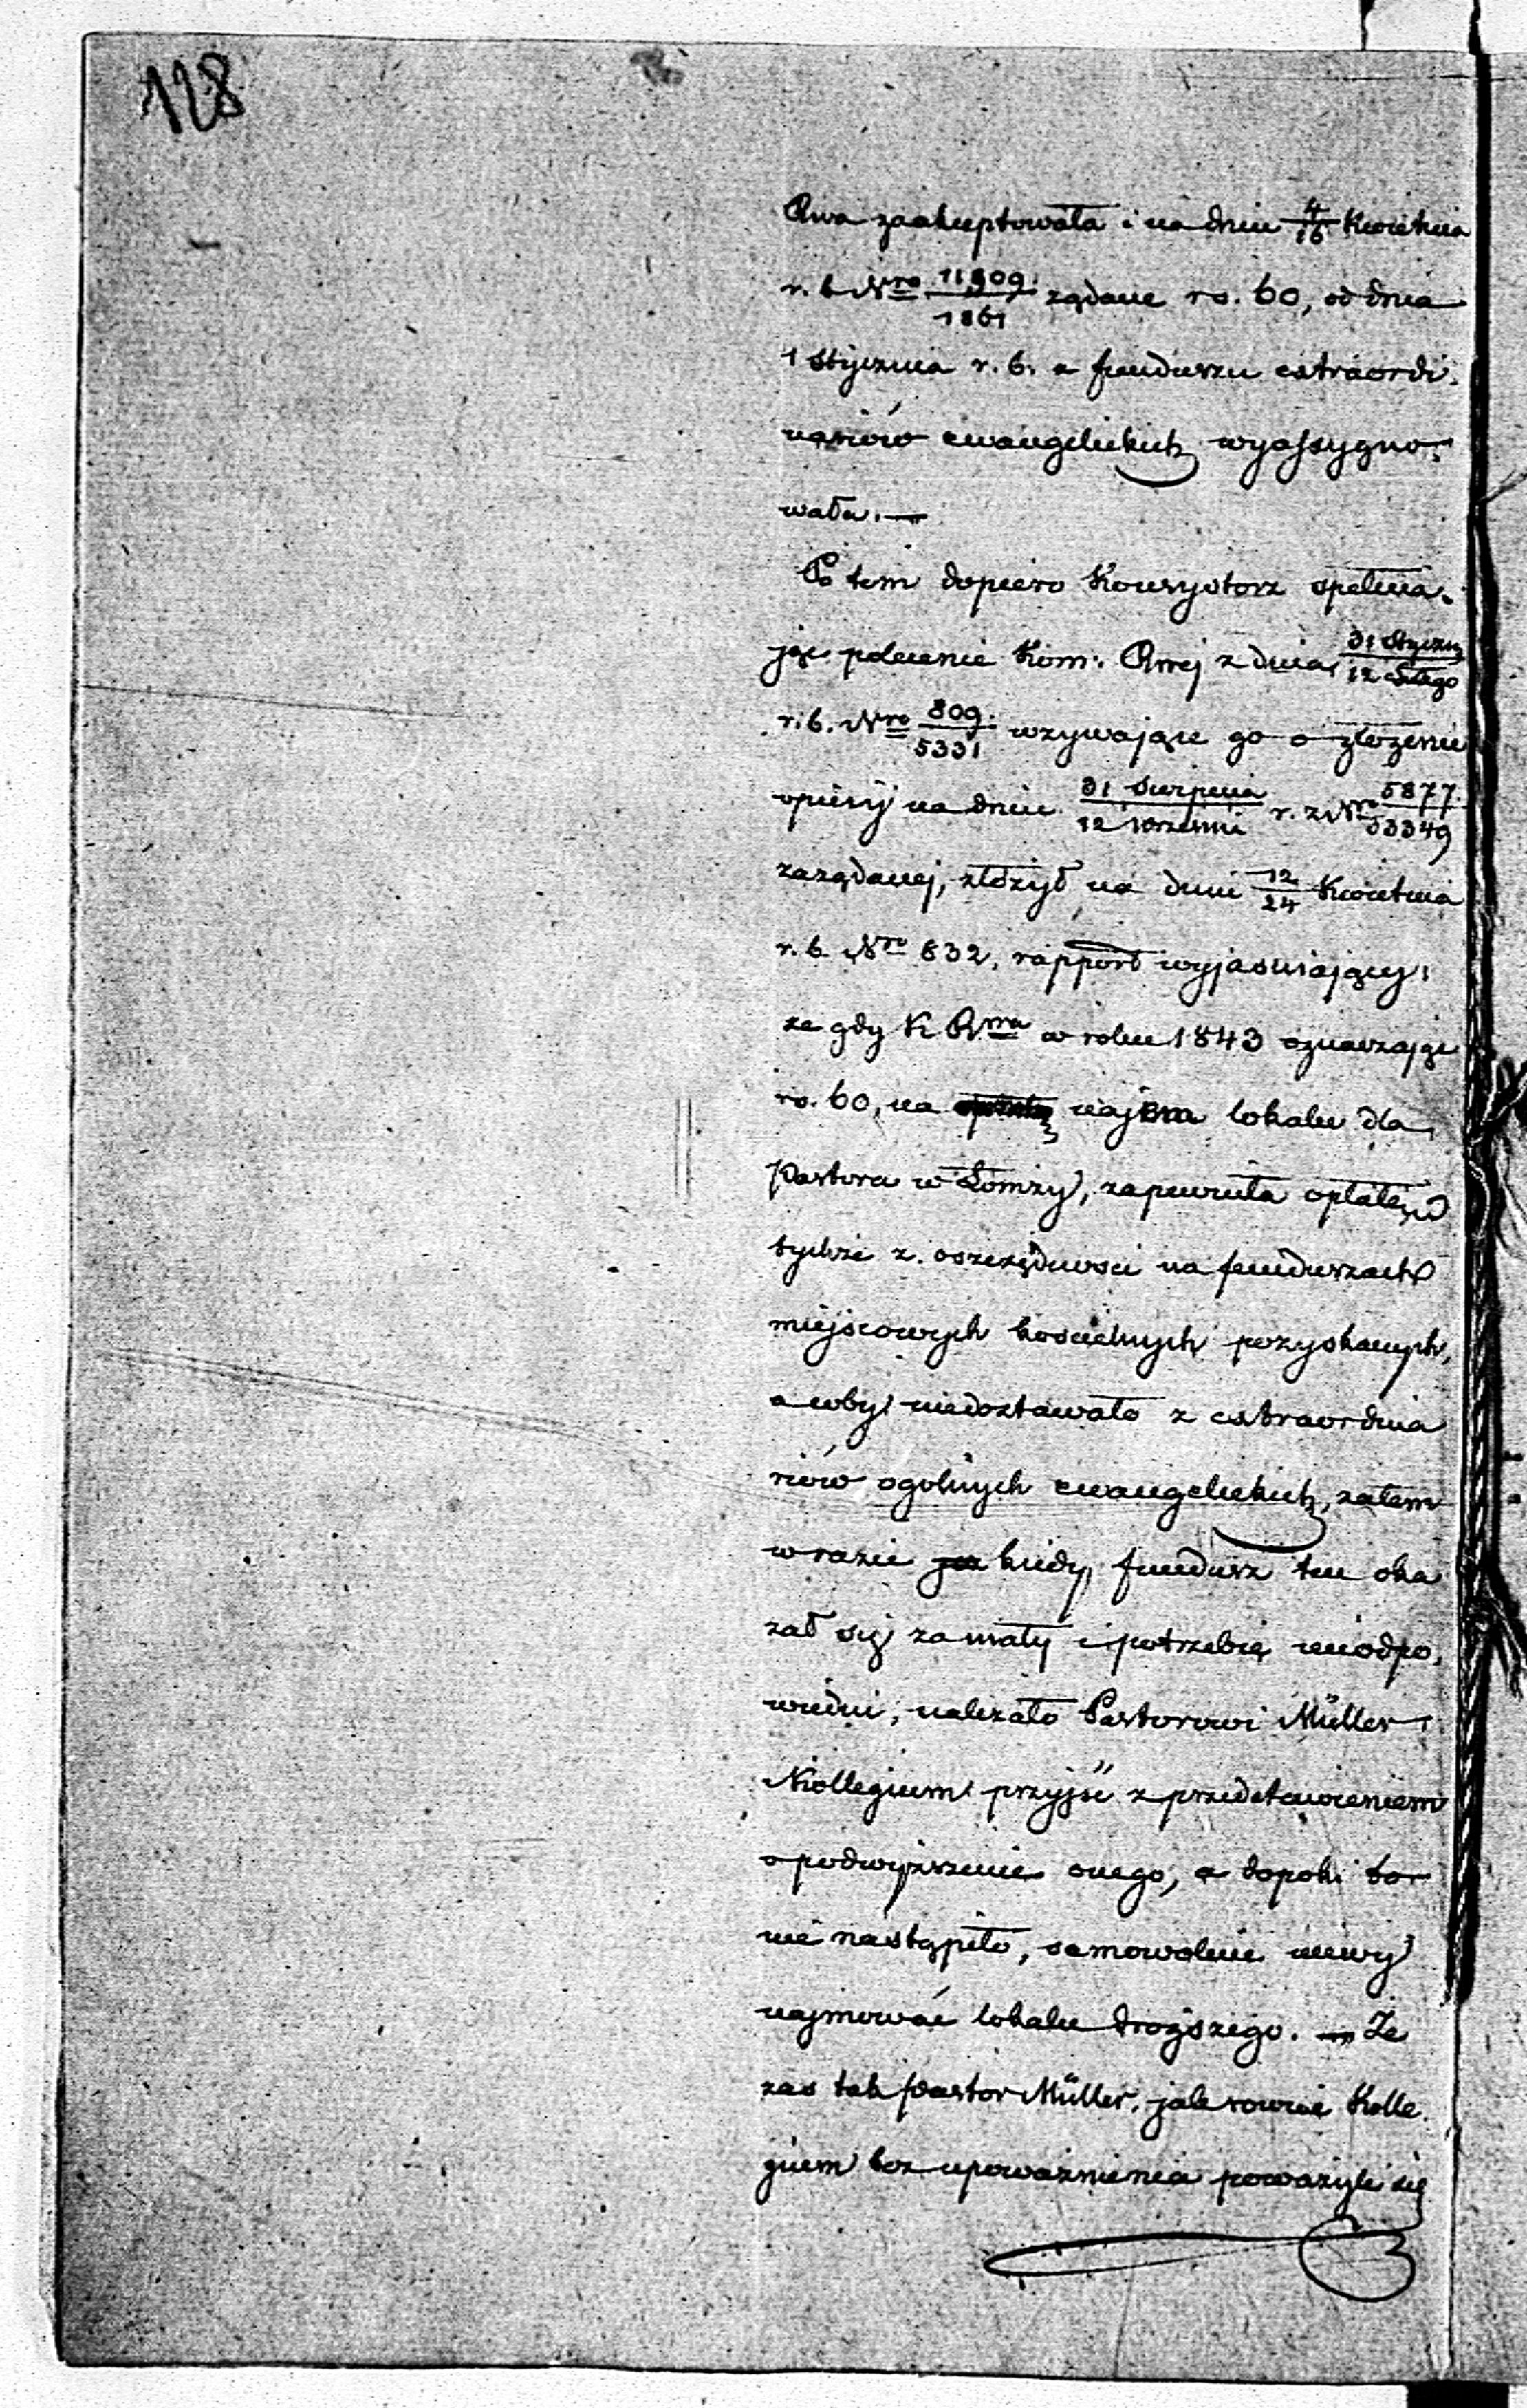 128
Rwa zaakceptowała i na dniu 4/16 Kwietnia
r. b. Nro 11,909/1861 żądane rs. 60, od dnia
1 Stycznia r. b. z funduszu extraordi-
nariów ewangelickich wyassygno-
wała. —
Po tem dopiero Konsystorz spełnia-
jąc polecenie Kom: Rwej z dnia 31 Styczn/12 Lutego
r. b. Nro 809/5331 wzywające go o złożenie
opinij na dniu 31 Sierpnia/12 Wrześni r. z. Nro 5877/53349
zażądanej, złożył na dniu 12/24 Kwietnia
r. b. Nro 632, rapport wyjasniający,
że gdy K Rwa w roku 1843 oznaczając
rs. 60, na najem lokalu dla
Pastora w Łomży, zapewniła opłatę
tychże z oszczędności na funduszach
miejscowych kościelnych pozyskanych,
a coby niedostawało z extraordina
riów ogolnych ewangelickich, zatem
w razie kiedy fundusz ten oka
zał się za mały i potrzebie nieodpo-
wiedni, należało Pastorowi Müller
i Kollegium przyjść z przedstawieniem
o podwyższenie onego, a dopoki to
nie nastąpiło, samowolnie niewy
najmować lokalu droższego. — Że
zas tak Pastor Müller, jak rownie Kolle-
gium bez upoważnienia poważyli się